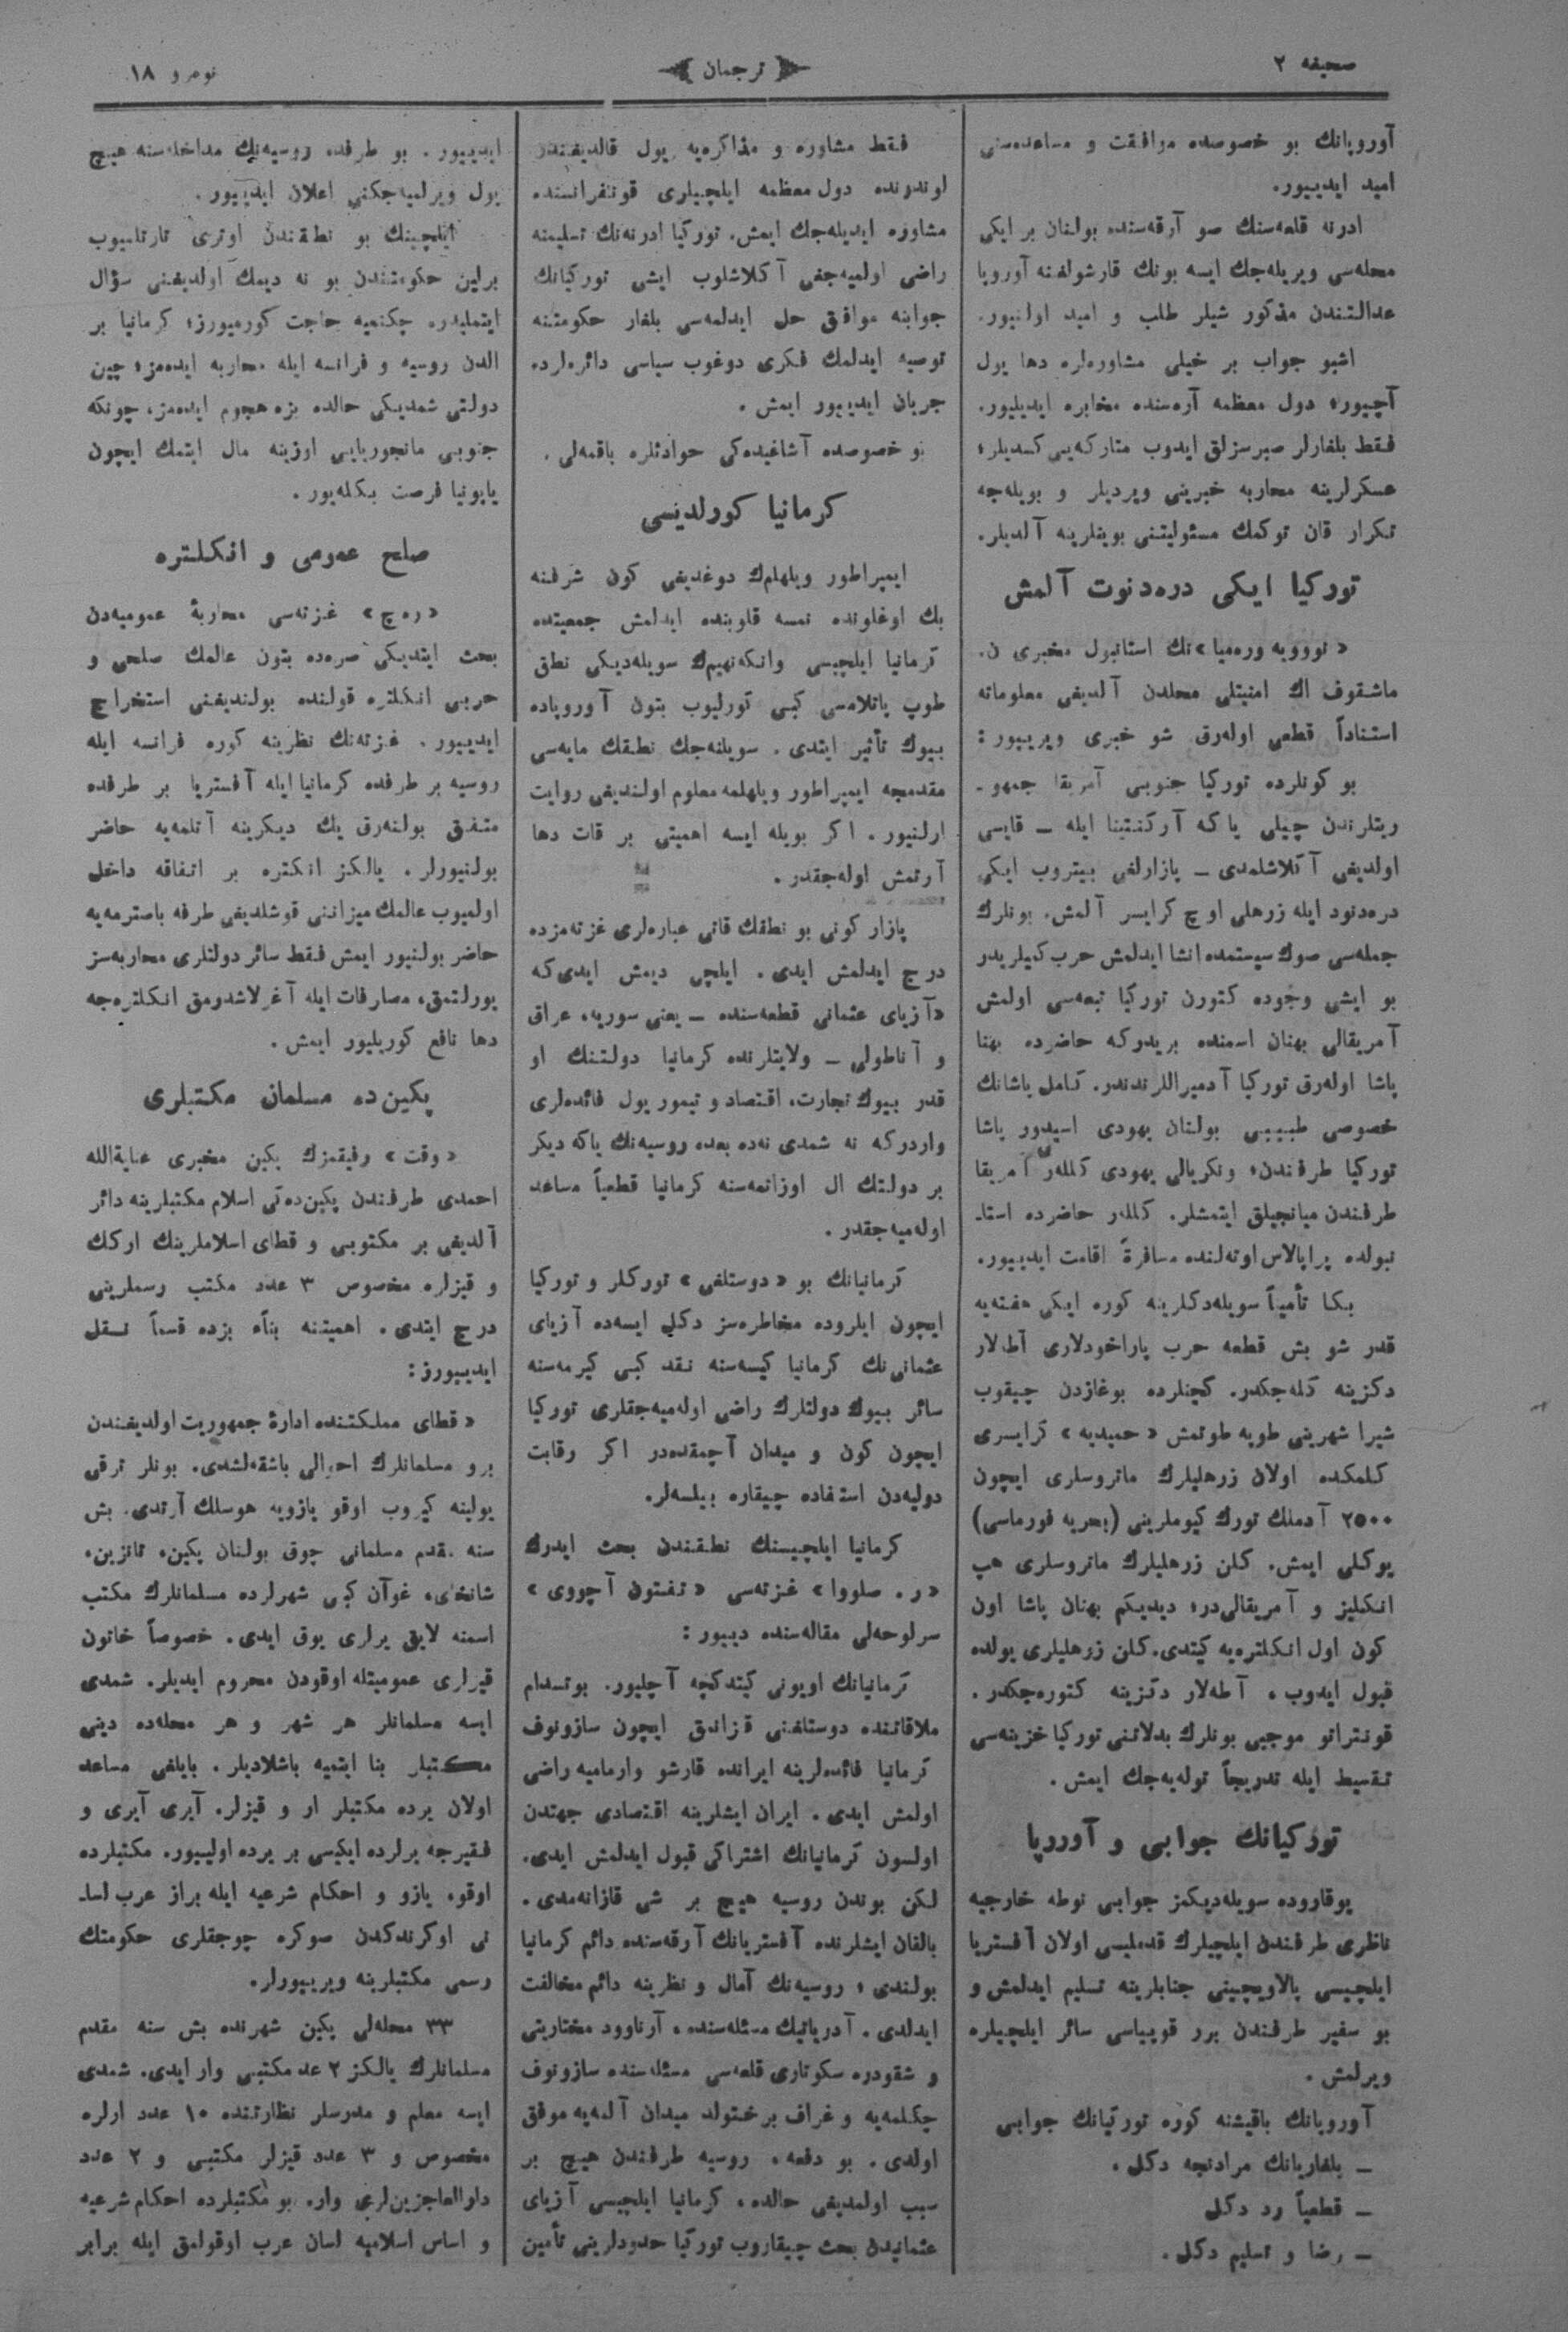 صحیفه ۲
ترجمان
نومرو ۱۸
آوروپانك بو خصوصده موافقت و مساعده‌سنی
امید ایدییور.
ادرنه قلعه‌سنك صو آرقه‌سنده بولنان بر ایكی
محله‌سی ویریله‌جك ایسه بونك قارشولغنه آوروپا
عدالتندن مذكور شیلر طلب و امید اولنیور.
اشبو جواب بر خیلی مشاوره‌لره دها یول
آچیور، دول معظمه آره‌سنده مخابره ایدیلیور.
فقط بلغارلر صبرسزلق ایدوب متاركه‌یی كسدیلر؛
عسكرلرینه محاربه خبرینی ویردیلر و بویله‌جه
تكرار قان توكمك مسئولیتنی بوینلرینه آلدیلر.
توركیا ایكی دره‌دنوت آلمش
«نوویه وره‌میا» نك استانبول مخبری ن.
ماشقوف اك امنیتلی محلدن آلدیغی معلوماته
استناداً قطعی اوله‌رق شو خبری ویرییور :
بو كونلرده توركیا جنوبی آمریقا جمهو-
ریتلرندن چیلی یا كه آركنتینا ایله — قایسی
اولدیغی آكلاشلمدی — پازارلغی بیتروب ایكی
دره‌دنود ایله زرهلی اوچ كرایسر آلمش. بونلرك
جمله‌سی صوك سیستمده انشا ایدلمش حرب كمیلریدر
بو ایشی وجوده كتورن توركیا تبعه‌سی اولمش
آمریقالی بهنان اسمنده بریدركه حاضرده بهنا
پاشا اوله‌رق توركیا آدمیراللرندندر. كامل پاشانك
خصوصی طبیبی بولنان یهودی اسیدور پاشا
توركیا طرفندن، ونكریالی یهودی كللەر آمریقا
طرفندن میانجیلق ایتمشلر. كللەر حاضرده استا-
نبولده پراپالاس اوته‌لنده مسافرةً اقامت ایدییور.
بكا تأمیناً سویله‌دكلرینه كوره ایكی هفته‌یه
قدر شو بش قطعه حرب پاراخودلاری آطه‌لار
دكزینه كله‌جكدر. كچنلرده بوغازدن چیقوب
شیرا شهرینی طوپه طوتمش «حمیدیه» كرایسری
كلمكده اولان زرهلیلرك ماتروسلری ایچون
۲۵۰۰ آدملك تورك كیوملرینی (بحریه فورماسی)
یوكلی ایمش. كلن زرهلیلرك ماتروسلری هپ
انكلیز و آمریقالی‌در، دیدیكم بهنان پاشا اون
كون اول انكلتره‌یه كیتدی. كلن زرهلیلری یولده
قبول ایدوب ، آطه‌لار دكزینه كتوره‌جكدر .
قونتراتو موجبی بونلرك بدلاتنی توركیا خزینه‌سی
تقسیط ایله تدریجاً توله‌یه‌جك ایمش .
توركیانك جوابی و آوروپا
یوقاروده سویله‌دیكمز جوابی نوطه خارجیه
ناظری طرفندن ایلچیلرك قدملیسی اولان آفستریا
ایلچیسی پالاویچینی جنابلرینه تسلیم ایدلمش و
بو سفیر طرفندن برر قوپیاسی سائر ایلچیلره
ویرلمش .
آوروپانك باقیشنه كوره توركیانك جوابی
— بلغاریانك مرادنجه دكل .
— قطعیاً رد دكل
— رضا و تسلیم دكل .
فقط مشاوره و مذاكره‌یه یول قالدیغندن
لوندونده دول معظمه ایلچیلری قونفرانسنده
مشاوره ایدیله‌جك ایمش. توركیا ادرنه‌نك تسلیمنه
راضی اولمیه‌جغی آكلاشلوب ایشی توركیانك
جوابنه موافق حل ایدلمه‌سی بلغار حكومتنه
توصیه ایدلمك فكری دوغوب سیاسی دائره‌لرده
جریان ایدییور ایمش .
بو خصوصده آشاغیده‌كی حوادثلره باقمه‌لی .
كرمانیا كورلدیسی
ایمپراطور ویلهلمك دوغدیغی كون شرفنه
بك اوغلونده نمسه قلوبنده ایدلمش جمعیتده
كرمانیا ایلچیسی وانكه‌نهیمك سویله‌دیكی نطق
طوپ پاتلامسی كبی كورلیوب بتون آوروپاده
بیوك تأثیر ایتدی . سویلنه‌جك نطقك مایه‌سی
مقدمجه ایمپراطور ویلهلمه معلوم اولندیغی روایت
اولنیور . اكر بویله ایسه اهمیتی بر قات دها
آرتمش اوله‌جقدر .
پازار كونی بو نطقك قاتی عباره‌لری غزته‌مزده
درج ایدلمش ایدی. ایلچی دیمش ایدی‌كه
«آزیای عثمانی قطعه‌سنده — یعنی سوریه، عراق
و آناطولی — ولایتلرنده كرمانیا دولتنك او
قدر بیوك تجارت، اقتصاد و تیمور یول فائده‌لری
واردركه نه شمدی نه‌ده بعده روسیه‌نك یاكه دیكر
بر دولتك ال اوزاتمه‌سنه كرمانیا قطعیاً مساعد
اوله‌میه‌جقدر .
كرمانیانك بو «دوستلغی» توركلر و توركیا
ایچون ایلروده مخاطره‌سز دكل ایسه‌ده آزیای
عثمانی‌نك كرمانیا كیسه‌سنه نقد كبی كیرمه‌سنه
سائر بیوك دولتلرك راضی اوله‌میه‌جقلری توركیا
ایچون كون و میدان آچمقده‌در اكر رقابت
دولیه‌دن استفاده چیقاره بیلسه‌لر.
كرمانیا ایلچیسنك نطقندن بحث ایدرك
«ر. صلووا» غزته‌سی «تفتون آچووی»
سرلوحه‌لی مقاله‌سنده دییور :
كرمانیانك اویونی كیتدكچه آچلیور. پوتسدام
ملاقاتنده دوستلغنی قزانمق ایچون سازونوف
كرمانیا فائده‌لرینه ایرانده قارشو وارمامیه راضی
اولمش ایدی . ایران ایشلرینه اقتصادی جهتدن
اولسون كرمانیانك اشتراكی قبول ایدلمش ایدی.
لكن بوندن روسیه هیچ بر شی قازانه‌مدی .
بالقان ایشلرنده آفستریانك آرقه‌سنده دائم كرمانیا
بولندی ؛ روسیه‌نك آمال و نظرینه دائم مخالفت
ایدلدی . آدریاتیك مسئله‌سنده ، آرناوود مختاریتی
و شقودره سكوتاری قلعه‌سی مسئله‌سنده سازونوف
چكلمه‌یه و غراف برختولد میدان آلمه‌یه موفق
اولدی. بو دفعه، روسیه طرفندن هیچ بر
سبب اولمدیغی حالده، كرمانیا ایلچیسی آزیای
عثمانیدن بحث چیقاروب توركیا حدودلرینی تأمین
ایدییور . بو طرفده روسیه‌نك مداخله‌سنه هیچ
یول ویرلمیه‌جكنی اعلان ایدییور .
ایلچینك بو نطقندن اوتری تارتلمیوب
برلین حكومتندن بو نه دیمك اولدیغنی سؤال
ایتملیدر. چكنمیه حاجت كورمیورز؛ كرمانیا بر
الدن روسیه و فرانسه ایله محاربه ایده‌مز؛ چین
دولتی شمدیكی حالده بزه هجوم ایده‌مز، چونكه
جنوبی مانجوریایی اوزینه مال ایتمك ایچون
یاپونیا فرصت بكله‌یور .
صلح عمومی و انكلتره
«ره‌چ» غزته‌سی محاربۀ عمومیه‌دن
بحث ایتدیكی صره‌ده بتون عالمك صلحی و
حربی انكلتره قولنده بولندیغنی استخراج
ایدییور . غزته‌نك نظرینه كوره فرانسه ایله
روسیه بر طرفده كرمانیا ایله آفستریا بر طرفده
متفق بولنه‌رق یك دیكرینه آتلمه‌یه حاضر
بولنیورلر . یالكز انكلتره بر اتفاقه داخل
اولمیوب عالمك میزاننی قوشلدیغی طرفه باصترمه‌یه
حاضر بولنیور ایمش فقط سائر دولتلری محاربه‌سز
یورلتمق، مصارفات ایله آغرلاشدرمق انكلتره‌جه
دها نافع كوریلیور ایمش .
پكین‌ده مسلمان مكتبلری
«وقت» رفیقمزك پكین مخبری عنایةالله
احمدی طرفندن پكین‌ده‌كی اسلام مكتبلرینه دائر
آلدیغی بر مكتوبی و قطای اسلاملرینك اركك
و قیزلره مخصوص ۳ عدد مكتب رسملرینی
درج ایتدی . اهمیتنه بناءً بزده قسماً نقل
ایدییورز :
«قطای مملكتنده ادارۀ جمهوریت اولدیغندن
برو مسلمانلرك احوالی باشقه‌لشدی. بونلر ترقی
یولینه كیروب اوقو یازویه هوسلك آرتدی. بش
سنه مقدم مسلمانی چوق بولنان پكین، تانزین،
شانغای، غوآن كبی شهرلرده مسلمانلرك مكتب
اسمنه لایق یرلری یوق ایدی. خصوصاً خاتون
قیزلری عمومیتله اوقودن محروم ایدیلر. شمدی
ایسه مسلمانلر هر شهر و هر محله‌ده دینی
مكتبلر بنا ایتمیه باشلادیلر. بایلغی مساعد
اولان یرده مكتبلر ار و قیزلر. آیری آیری و
فقیرجه یرلرده ایكیسی بر یرده اولییور. مكتبلرده
اوقو، یازو و احكام شرعیه ایله براز عرب لسا-
نی اوكرندكدن صوكره چوجقلری حكومتك
رسمی مكتبلرینه ویرییورلر.
۳۳ محله‌لی پكین شهرنده بش سنه مقدم
مسلمانلرك یالكز ۲ عدد مكتبی وار ایدی. شمدی
ایسه معلم و مدرسلر نظارتنده ۱۰ عدد ارلره
مخصوص و ۳ عدد قیزلر مكتبی و ۲ عدد
دارالعاجزین‌لری وار. بو مكتبلرده احكام شرعیه
و اساس اسلامیه لسان عرب اوقولمق ایله برابر